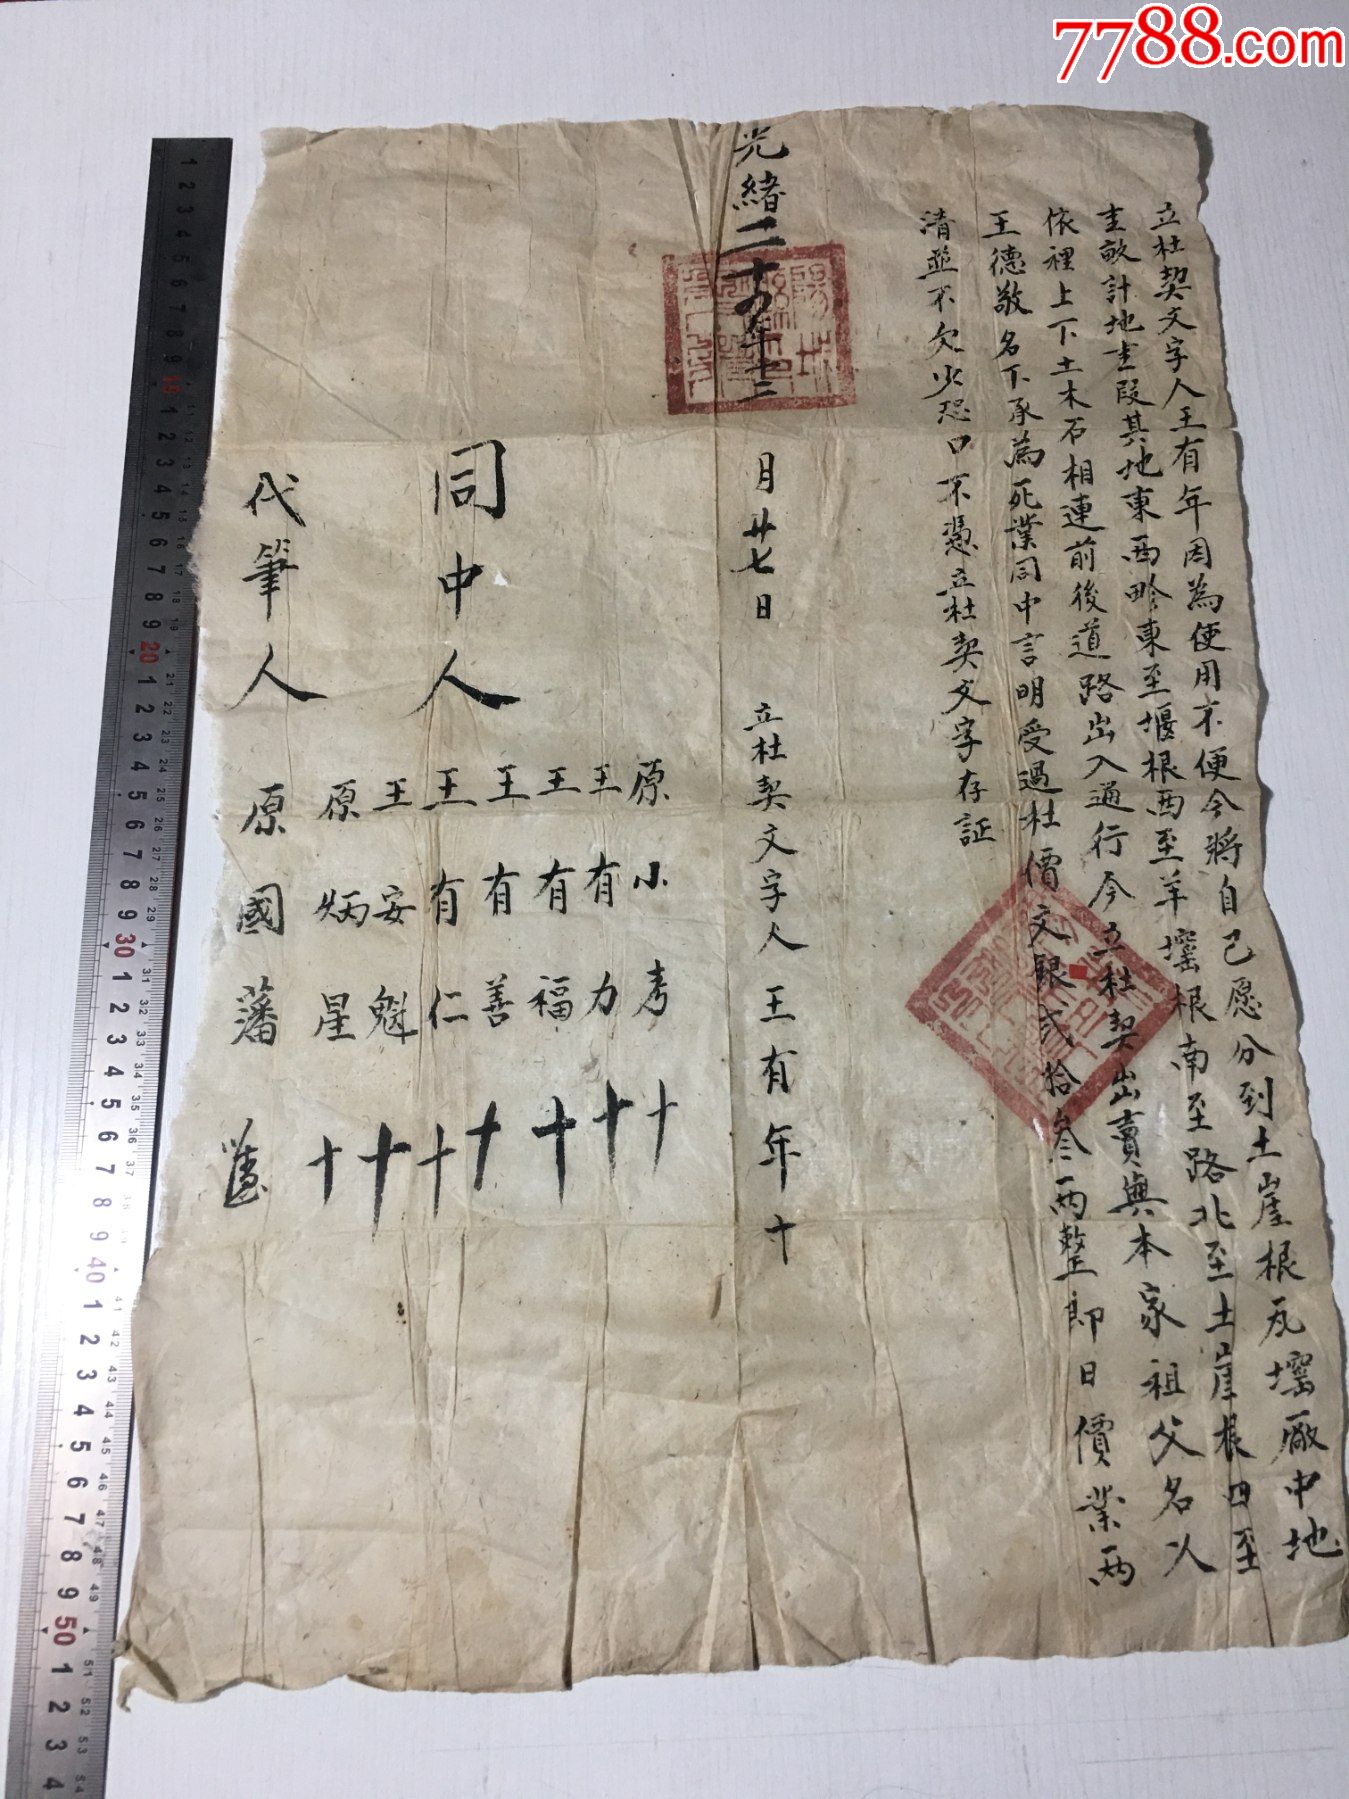 7788.com
立杜契文字人王有年因為使用不便今將自己愿分到土崖根瓦窰廠中地
畝計地 段其地東西畛東至堰根西至羊窰根南至路北至土崖根四至
依裡上下土木石相連前後道路出入通行今立杜契出賣與本家祖父名人
王德敬名下承為死業同中言明受過杜價文銀弍拾叁両整即日價業両
清並不欠少恐口不憑立杜契文字存証
光緒二十 年十二月廿七日 立杜契文字人王有年十
同中人
原小考十
王有力十
王有福十
王有善十
王有仁十
王安魁十
原炳星十
代筆人 原國藩